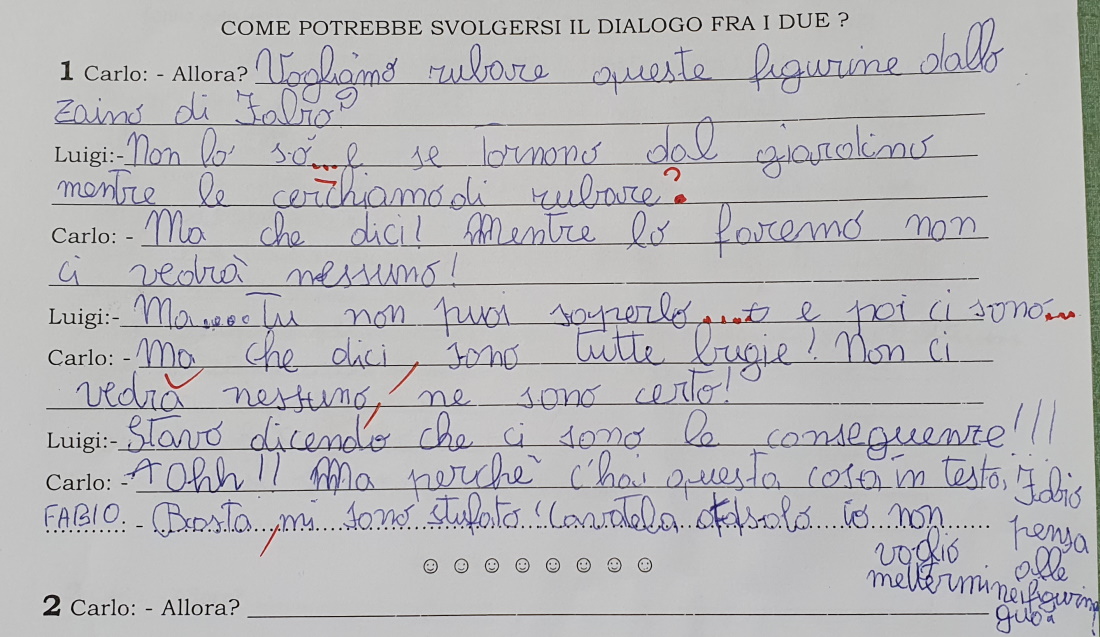 COME POTREBBE SVOLGERSI IL DIALOGO FRA I DUE ?
1 Carlo: - Allora? Vogliamo rubare queste figurine dallo
zaino di Fabio?
Luigi:- Non lo so... e se tornono dal giardino
mentre le cerchiamo di rubare?
Carlo: - Ma che dici! Mentre lo faremo non
ci vedrà nessuno!
Luigi:- Ma.....Tu non puoi saperlo.... e poi ci sono...
Carlo: - Ma che dici, sono tutte bugie! Non ci
vedrà nessuno, ne sono certo!
Luigi:- Stavo dicendo che ci sono le conseguenze!!!
Carlo: - Ohh!! Ma perchè c'hai questa cosa in testa, Fabio
pensa
alle
figurine!
FABIO: - Basta, mi sono stufato! Cavatela da solo io non
voglio
mettermi nei
guai
☺ ☺ ☺ ☺ ☺ ☺ ☺ ☺
2 Carlo: - Allora?